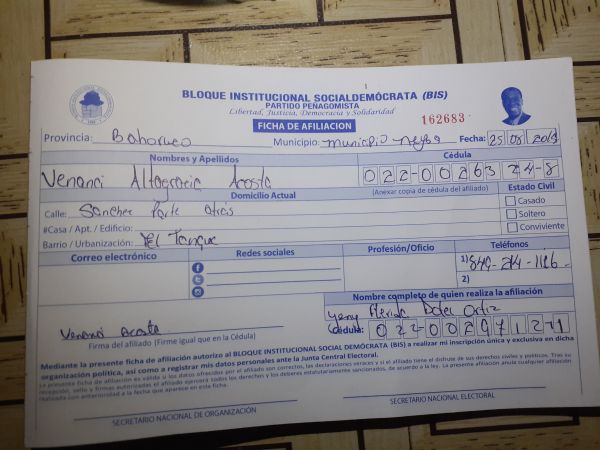 BLOQUE INSTITUCIONAL SOCIALDEMÓCRATA (BIS)
PARTIDO PEÑAGOMISTA
Libertad, Justicia, Democracia y Solidaridad
FICHA DE AFILIACION
162683
Provincia: Bahoruco Municipio: Municipio Neyba Fecha: 25/08/2019
Nombres y Apellidos Cédula
Venanci Altagracia Acosta 022-0026324-8
Domicilio Actual (Anexar copia de cédula del afiliado) Estado Civil
Calle: Sanchez Parte atras Casado
#Casa / Apt. / Edificio: Soltero
Barrio / Urbanización: El Tanque Conviviente
Correo electrónico Redes sociales Profesión/Oficio Teléfonos
1) 849-214-1126
2)
Nombre completo de quien realiza la afiliación
Yeny Merida Ortiz
Venanci acosta Cédula: 022-0029712-1
Firma del afiliado (Firme igual que en la Cédula)
Mediante la presente ficha de afiliación autorizo al BLOQUE INSTITUCIONAL SOCIAL DEMÓCRATA (BIS) a realizar mi inscripción única y exclusiva en dicha
organización política, así como a registrar mis datos personales ante la Junta Central Electoral.
La presente ficha de afiliación es válida si los datos ofrecidos por el afiliado son correctos, las declaraciones veraces y si el afiliado tiene el disfrute de sus derechos civiles y políticos. Tras su
recepción, sello y firmas autorizadas el afiliado ejercerá todos los derechos y los deberes estatutariamente sancionados, de acuerdo a la ley. La presente afiliación anula cualquier afiliación
realizada con anterioridad a la fecha que aparece en esta ficha.
SECRETARIO NACIONAL DE ORGANIZACIÓN SECRETARIO NACIONAL ELECTORAL